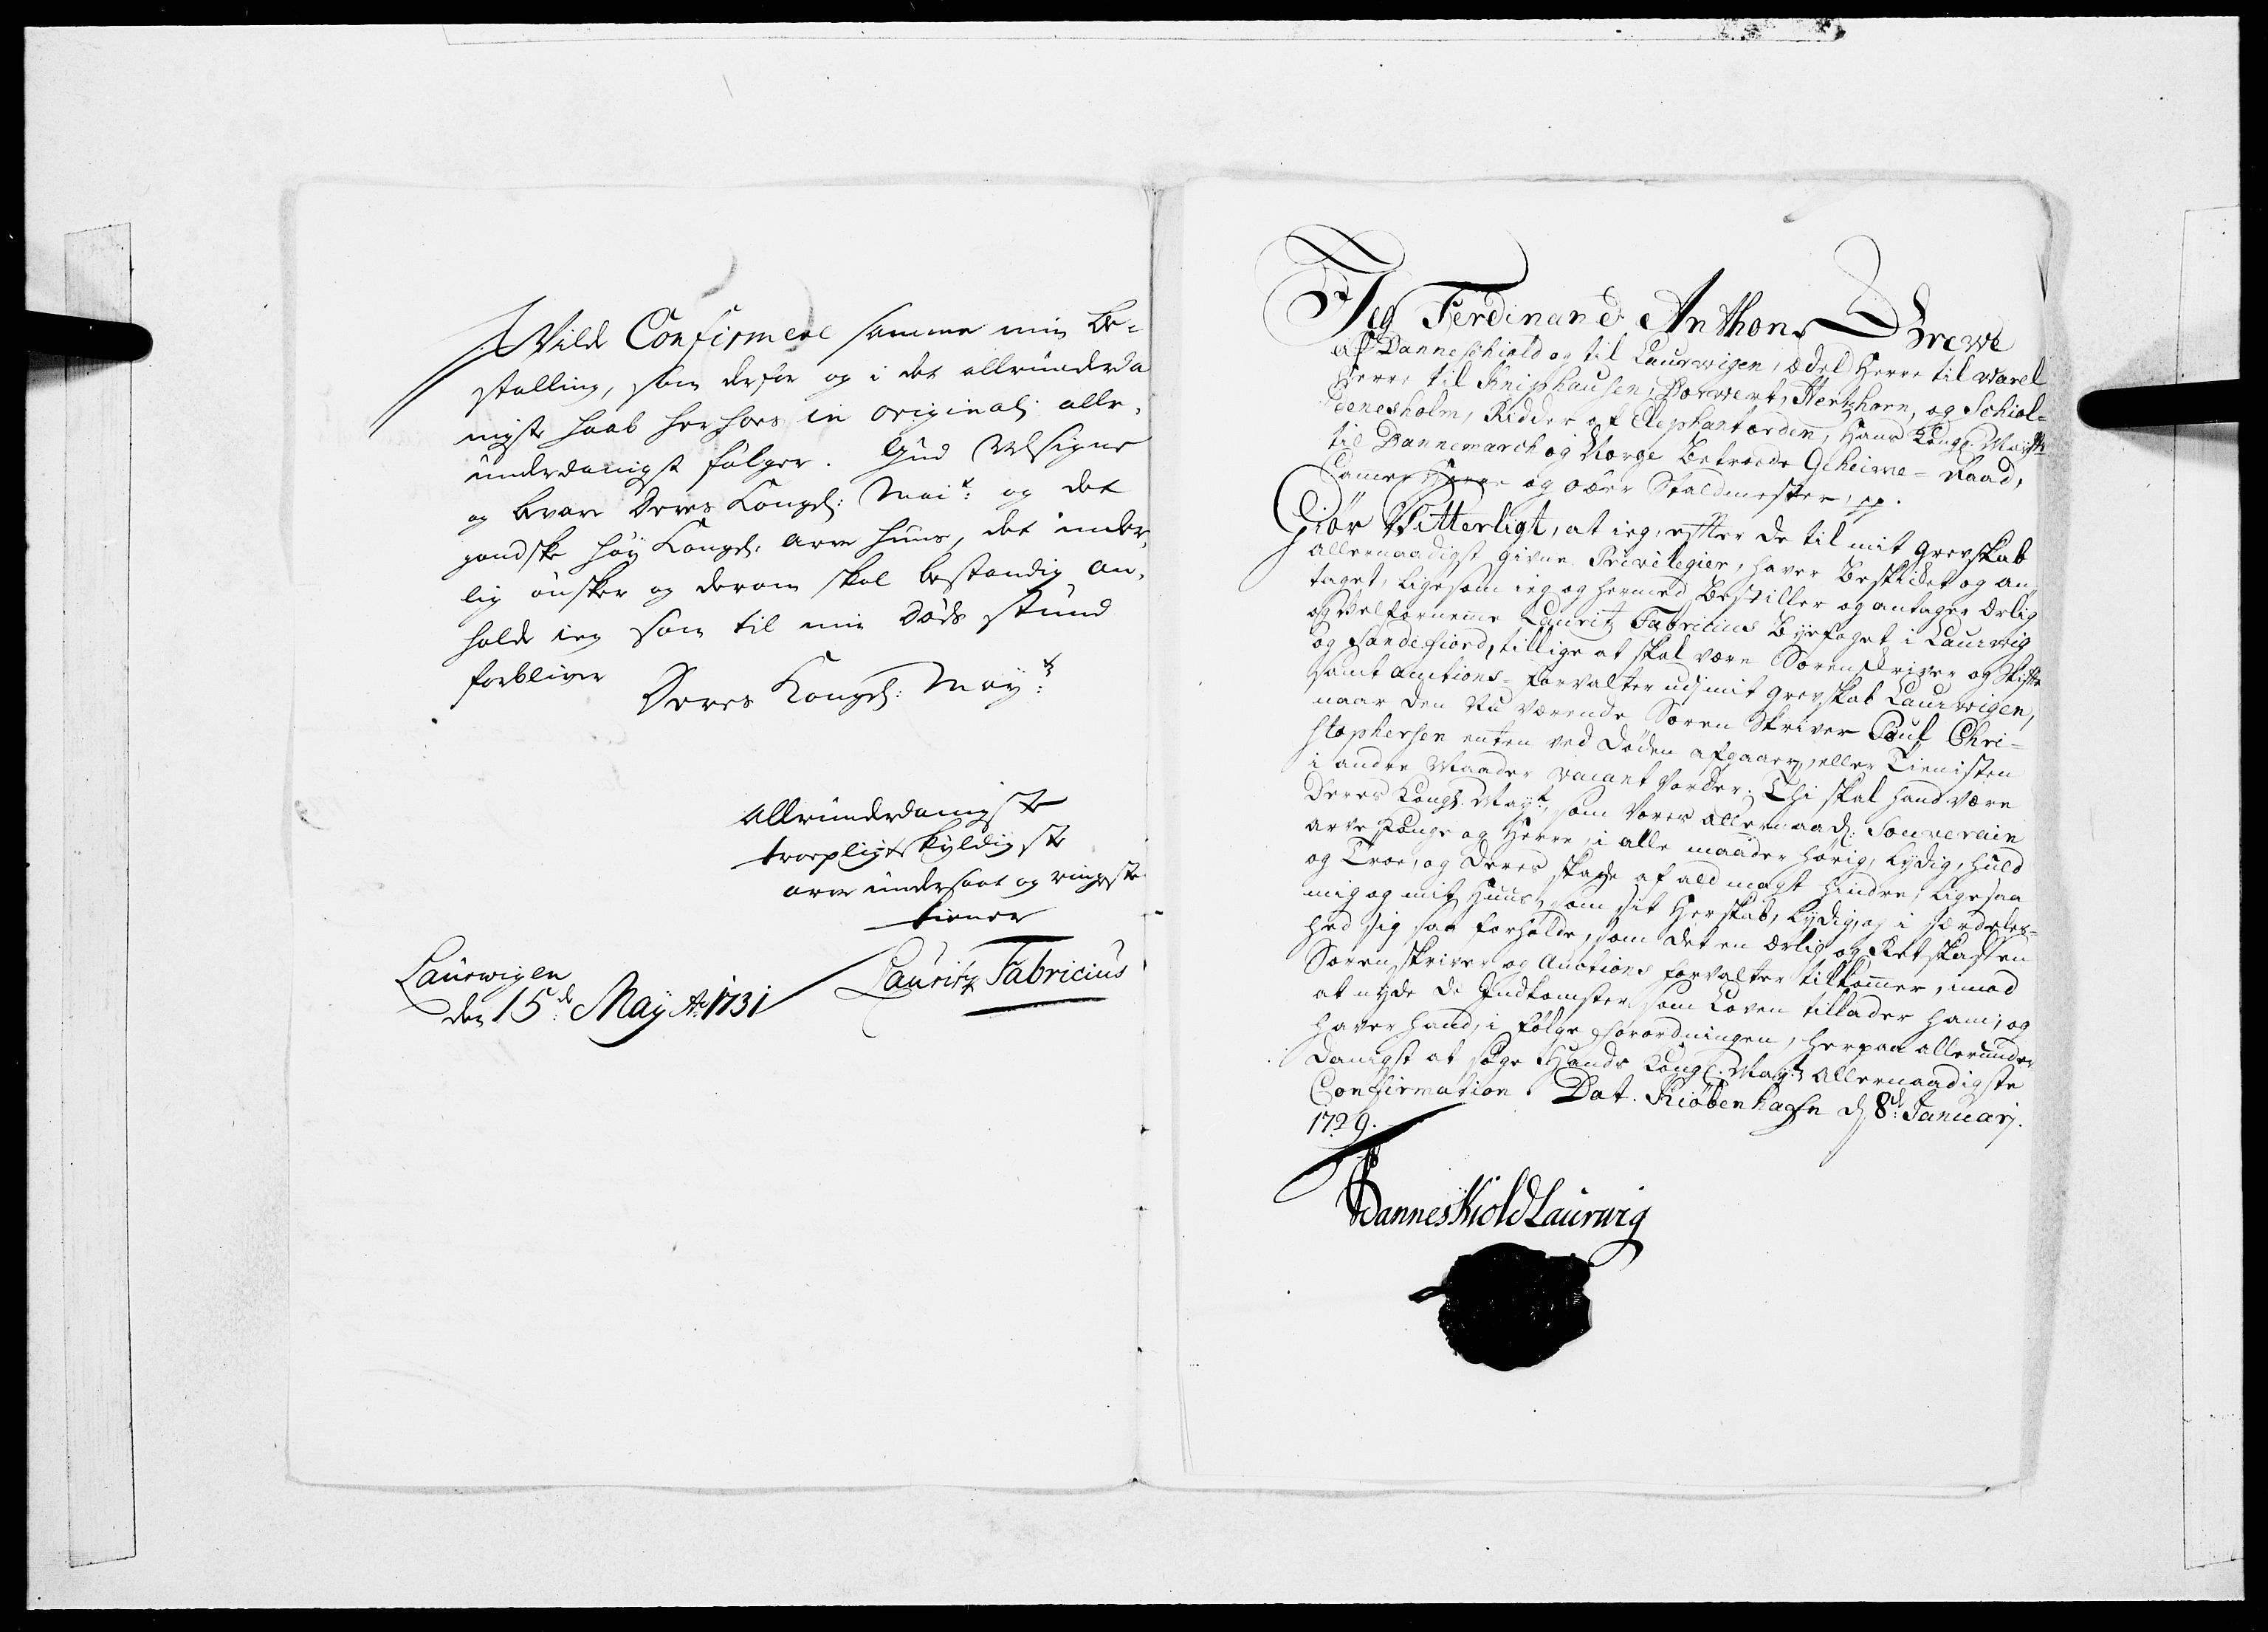 Vilde Confirmere samme min Be-
stalling, som derfor og i det allerunderda
nigste haab herhos in originali aller,
underdanigst følger. Gud velsigne
og bevare Deres Kongel: Mait: og det
gandske høy Kongel: arve Huus, det inder,
lig ønsker og derom skal bestandig an,
holde ieg som til min Døds stund
forbliver
Deres Kongel: May:ts
Allerunderdanigste
troepligtskyldigste
arve undersaat og ringeste
tiener
Lauritz Fabricius
Laurwigen
den 15de: May Ao 1731
Jeg Ferdinand Anthon Grewe
af Danneschiold og til Laurwigen, ædel Herre til Varel
Herre til Kniphausen, Dorwert, Hertzhorn, og Schiol-
denesholm, Ridder af Elephantorden, Hans Kongl. Maytts
til Dannemarch og Norge Betroede Geheime-Raad,
Camer Herre og Ober Staldmester, pp.
Giør Vitterligt, at ieg, efter de til mit Grevskab
allernaadigst givne Privilegier, haver Beskicket og an
taget, ligesom ieg og hermed Bestiller og antager Ærlig
og Velfornemme Lauritz Fabricius Byefoget i Laurwig
og Sandefiord, tillige at skal være Sorenskriver og Skifte
samt Auctions-Forvalter udj mit Grevskab Laurwigen,
naar den Nu værende Soren Skriver Poul Chri-
stophersen enten ved Døden afgaaer, eller Tienisten
i andre Maader vacant vorder; Thi skal hand være
Deres Kongl. Mayt, som vores allernaad: Souverain
arve Konge og Herre, i alle maader hørig, lydig, huld
og Troe, og Deres skade af ald magt hindre, ligesaa
mig og mit Huus, som sit Herskab, lydig, og i særdeles-
hed sig saa forholde, som det en ærlig og Retskaffen
Sorenskriver og Auctions Forvalter tilkommer, imod
at nyde de Indkomster som Loven tillader ham; og
haver hand, i følge Forordningen, herpaa allerunder
danigst at søge Hands Kongl: Mayts Allernaadigste
Confirmation. Dat. Kiøbenhafn d. 8de: Januarj.
1729.
Danneskiold Laurwig